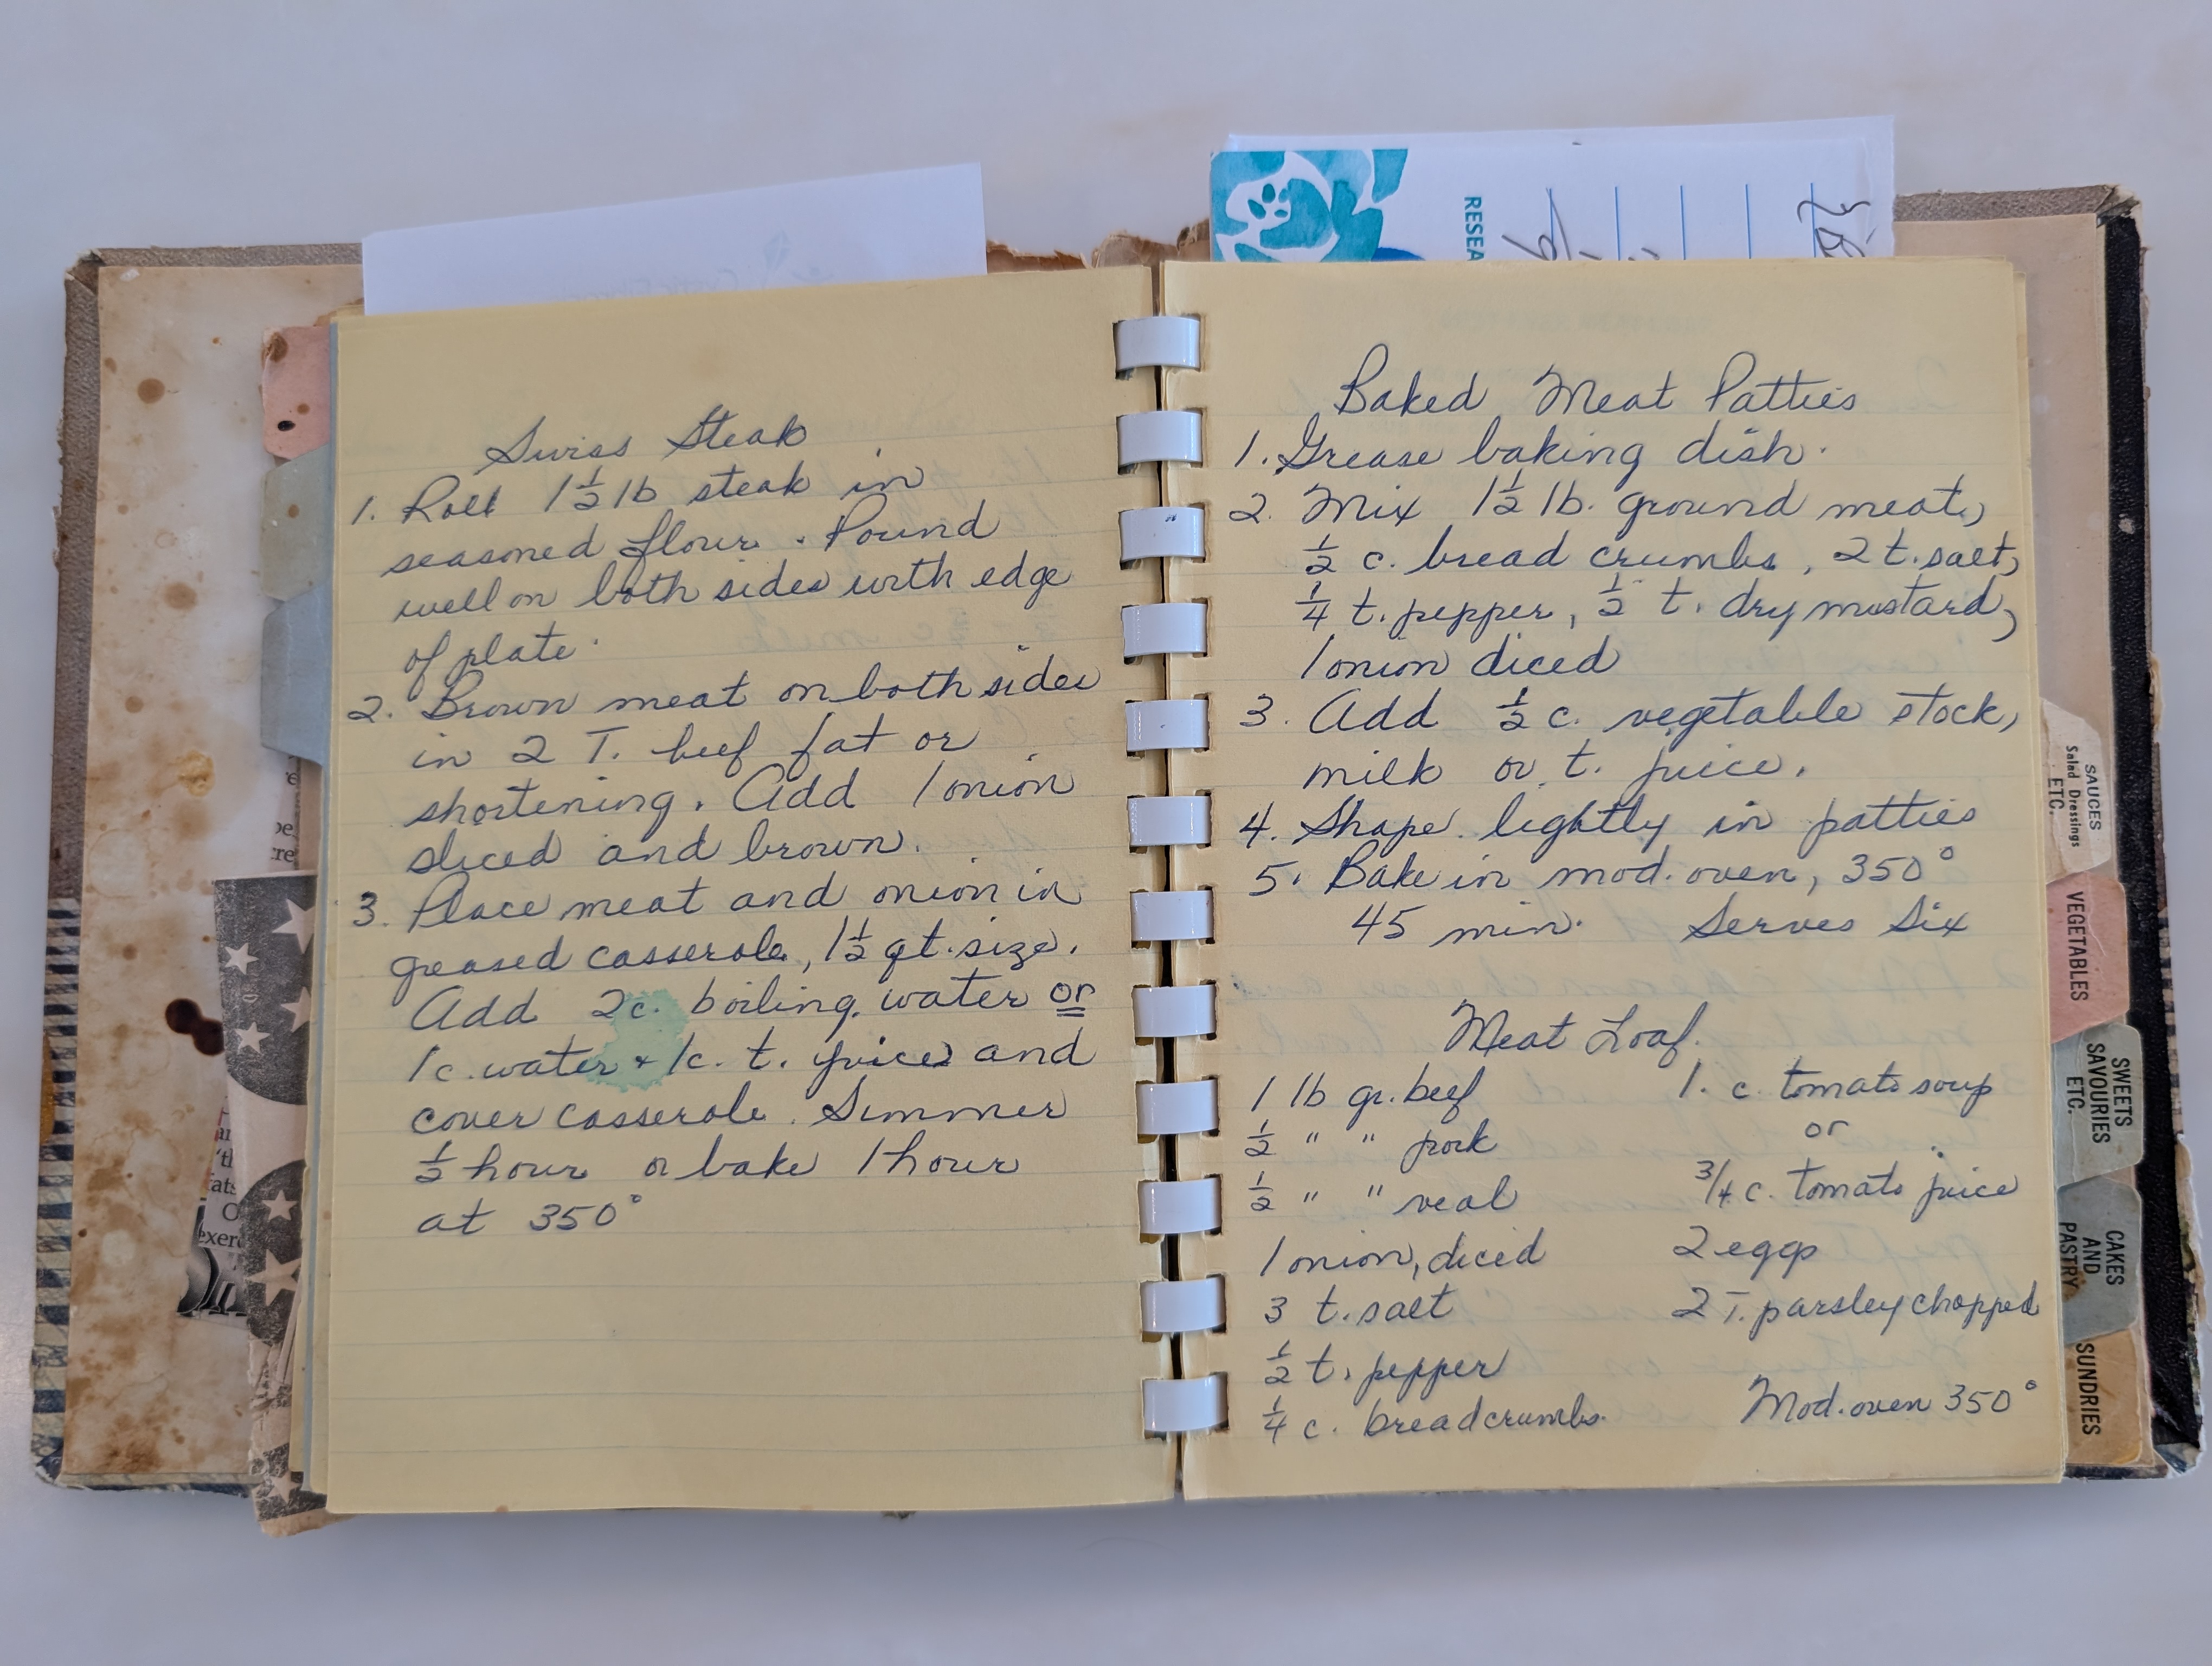 Swiss Steak
1. Roll 1 1/2 lb steak in
seasoned flour. Pound
well on both sides with edge
of plate.
2. Brown meat on both sides
in 2 T. beef fat or
shortening. Add 1 onion
sliced and brown.
3. Place meat and onion in
greased casserole, 1 1/2 qt. size.
Add 2c. boiling water or
1c. water + 1c. t. juice and
cover casserole. Simmer
1/2 hour or bake 1 hour
at 350°
RESEA
Baked Meat Patties
1. Grease baking dish.
2. Mix 1 1/2 lb. ground meat,
1/2 c. bread crumbs, 2 t. salt,
1/4 t. pepper, 1/2 t. dry mustard,
1 onion diced
3. Add 1/2 c. vegetable stock,
milk or t. juice.
4. Shape lightly in patties
5. Bake in mod. oven, 350°
45 min. Serves Six
Meat Loaf.
1 lb gr. beef 1. c. tomato soup
1/2 " " pork or
1/2 " " veal 3/4 c. tomato juice
1 onion, diced 2 eggs
3 t. salt 2 T. parsley chopped
1/2 t. pepper
1/4 c. breadcrumbs. Mod. oven 350°
SAUCES
Salad Dressings
ETC.
VEGETABLES
SWEETS
SAVOURIES
ETC.
CAKES
AND
PASTRY
SUNDRIES